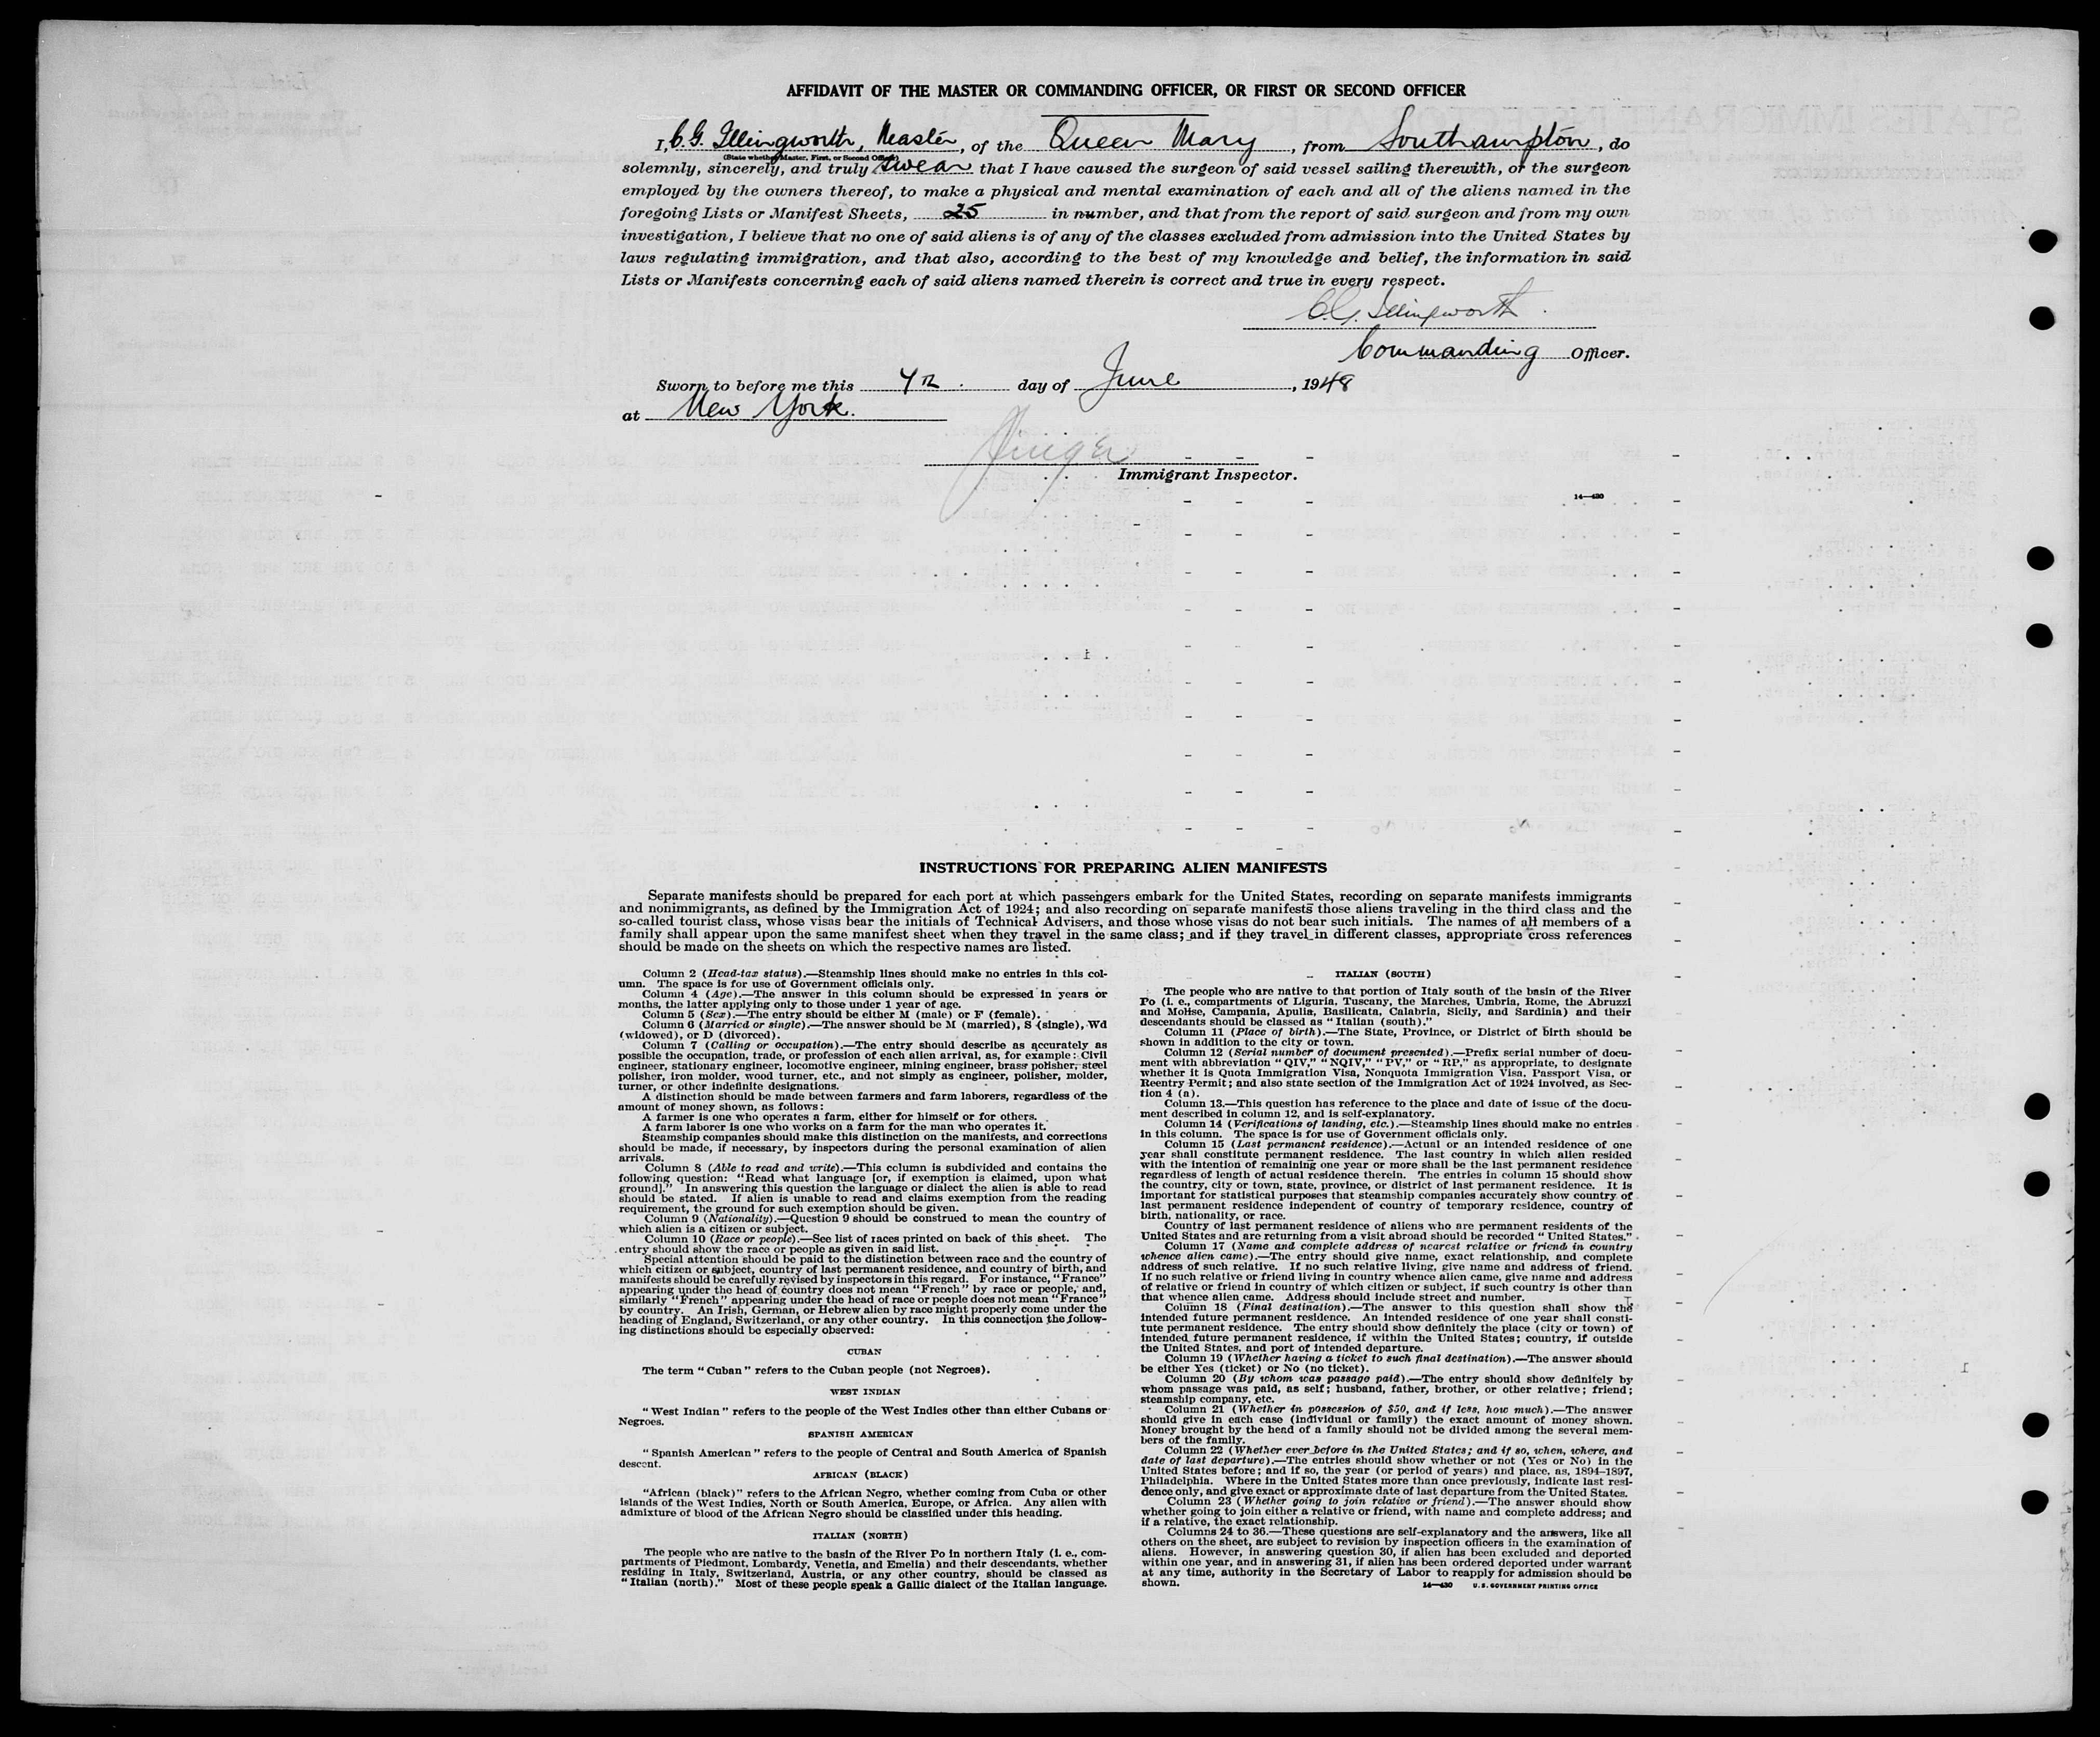 AFFIDAVIT OF THE MASTER OR COMMANDING OFFICER, OR FIRST OR SECOND OFFICER
I, C. G. Illingworth, Master, of the Queen Mary, from Southampton, do
(State whether Master, First, or Second Officer)
solemnly, sincerely, and truly swear that I have caused the surgeon of said vessel sailing therewith, or the surgeon
employed by the owners thereof, to make a physical and mental examination of each and all of the aliens named in the
foregoing Lists or Manifest Sheets, 25 in number, and that from the report of said surgeon and from my own
investigation, I believe that no one of said aliens is of any of the classes excluded from admission into the United States by
laws regulating immigration, and that also, according to the best of my knowledge and belief, the information in said
Lists or Manifests concerning each of said aliens named therein is correct and true in every respect.
C. G. Illingworth.
Commanding Officer.
Sworn to before me this day of June, 1948
at New York.
Immigrant Inspector.
14—430
INSTRUCTIONS FOR PREPARING ALIEN MANIFESTS
Separate manifests should be prepared for each port at which passengers embark for the United States, recording on separate manifests immigrants
and nonimmigrants, as defined by the Immigration Act of 1924; and also recording on separate manifests those aliens traveling in the third class and the
so-called tourist class, whose visas bear the initials of Technical Advisers, and those whose visas do not bear such initials. The names of all members of a
family shall appear upon the same manifest sheet when they travel in the same class; and if they travel in different classes, appropriate cross references
should be made on the sheets on which the respective names are listed.
Column 2 (Head-tax status).—Steamship lines should make no entries in this col-
umn. The space is for use of Government officials only.
Column 4 (Age).—The answer in this column should be expressed in years or
months, the latter applying only to those under 1 year of age.
Column 5 (Sex).—The entry should be either M (male) or F (female).
Column 6 (Married or single).—The answer should be M (married), S (single), Wd
(widowed), or D (divorced).
Column 7 (Calling or occupation).—The entry should describe as accurately as
possible the occupation, trade, or profession of each alien arrival, as, for example: Civil
engineer, stationary engineer, locomotive engineer, mining engineer, brass polisher, steel
polisher, iron molder, wood turner, etc., and not simply as engineer, polisher, molder,
turner, or other indefinite designations.
A distinction should be made between farmers and farm laborers, regardless of the
amount of money shown, as follows:
A farmer is one who operates a farm, either for himself or for others.
A farm laborer is one who works on a farm for the man who operates it.
Steamship companies should make this distinction on the manifests, and corrections
should be made, if necessary, by inspectors during the personal examination of alien
arrivals.
Column 8 (Able to read and write).—This column is subdivided and contains the
following question: "Read what language [or, if exemption is claimed, upon what
ground]." In answering this question the language or dialect the alien is able to read
should be stated. If alien is unable to read and claims exemption from the reading
requirement, the ground for such exemption should be given.
Column 9 (Nationality).—Question 9 should be construed to mean the country of
which alien is a citizen or subject.
Column 10 (Race or people).—See list of races printed on back of this sheet. The
entry should show the race or people as given in said list.
Special attention should be paid to the distinction between race and the country of
which citizen or subject, country of last permanent residence, and country of birth, and
manifests should be carefully revised by inspectors in this regard. For instance, "France"
appearing under the head of country does not mean "French" by race or people, and,
similarly "French" appearing under the head of race or people does not mean "France"
by country. An Irish, German, or Hebrew alien by race might properly come under the
heading of England, Switzerland, or any other country. In this connection the follow-
ing distinctions should be especially observed:
CUBAN
The term "Cuban" refers to the Cuban people (not Negroes).
WEST INDIAN
"West Indian" refers to the people of the West Indies other than either Cubans or
Negroes.
SPANISH AMERICAN
"Spanish American" refers to the people of Central and South America of Spanish
descent.
AFRICAN (BLACK)
"African (black)" refers to the African Negro, whether coming from Cuba or other
islands of the West Indies, North or South America, Europe, or Africa. Any alien with
admixture of blood of the African Negro should be classified under this heading.
ITALIAN (NORTH)
The people who are native to the basin of the River Po in northern Italy (i. e., com-
partments of Piedmont, Lombardy, Venetia, and Emelia) and their descendants, whether
residing in Italy, Switzerland, Austria, or any other country, should be classed as
"Italian (north)." Most of these people speak a Gallic dialect of the Italian language.
ITALIAN (SOUTH)
The people who are native to that portion of Italy south of the basin of the River
Po (i. e., compartments of Liguria, Tuscany, the Marches, Umbria, Rome, the Abruzzi
and Molise, Campania, Apulia, Basilicata, Calabria, Sicily, and Sardinia) and their
descendants should be classed as "Italian (south)."
Column 11 (Place of birth).—The State, Province, or District of birth should be
shown in addition to the city or town.
Column 12 (Serial number of document presented).—Prefix serial number of docu-
ment with abbreviation "QIV," "NQIV," "PV," or "RP," as appropriate, to designate
whether it is Quota Immigration Visa, Nonquota Immigration Visa, Passport Visa, or
Reentry Permit; and also state section of the Immigration Act of 1924 involved, as Sec-
tion 4 (a).
Column 13.—This question has reference to the place and date of issue of the docu-
ment described in column 12, and is self-explanatory.
Column 14 (Verifications of landing, etc.).—Steamship lines should make no entries
in this column. The space is for use of Government officials only.
Column 15 (Last permanent residence).—Actual or an intended residence of one
year shall constitute permanent residence. The last country in which alien resided
with the intention of remaining one year or more shall be the last permanent residence
regardless of length of actual residence therein. The entries in column 15 should show
the country, city or town, state, province, or district of last permanent residence. It is
important for statistical purposes that steamship companies accurately show country of
last permanent residence independent of country of temporary residence, country of
birth, nationality, or race.
Country of last permanent residence of aliens who are permanent residents of the
United States and are returning from a visit abroad should be recorded "United States."
Column 17 (Name and complete address of nearest relative or friend in country
whence alien came).—The entry should give name, exact relationship, and complete
address of such relative. If no such relative living, give name and address of friend.
If no such relative or friend living in country whence alien came, give name and address
of relative or friend in country of which citizen or subject, if such country is other than
that whence alien came. Address should include street and number.
Column 18 (Final destination).—The answer to this question shall show the
intended future permanent residence. An intended residence of one year shall consti-
tute permanent residence. The entry should show definitely the place (city or town) of
intended future permanent residence, if within the United States; country, if outside
the United States, and port of intended departure.
Column 19 (Whether having a ticket to such final destination).—The answer should
be either Yes (ticket) or No (no ticket).
Column 20 (By whom was passage paid).—The entry should show definitely by
whom passage was paid, as self; husband, father, brother, or other relative; friend;
steamship company, etc.
Column 21 (Whether in possession of $50, and if less, how much).—The answer
should give in each case (individual or family) the exact amount of money shown.
Money brought by the head of a family should not be divided among the several mem-
bers of the family.
Column 22 (Whether ever before in the United States; and if so, when, where, and
date of last departure).—The entries should show whether or not (Yes or No) in the
United States before; and if so, the year (or period of years) and place, as, 1894–1897,
Philadelphia. Where in the United States more than once previously, indicate last resi-
dence only, and give exact or approximate date of last departure from the United States.
Column 23 (Whether going to join relative or friend).—The answer should show
whether going to join either a relative or friend, with name and complete address; and
if a relative, the exact relationship.
Columns 24 to 36.—These questions are self-explanatory and the answers, like all
others on the sheet, are subject to revision by inspection officers in the examination of
aliens. However, in answering question 30, if alien has been excluded and deported
within one year, and in answering 31, if alien has been ordered deported under warrant
at any time, authority in the Secretary of Labor to reapply for admission should be
shown.
14—430 U. S. GOVERNMENT PRINTING OFFICE